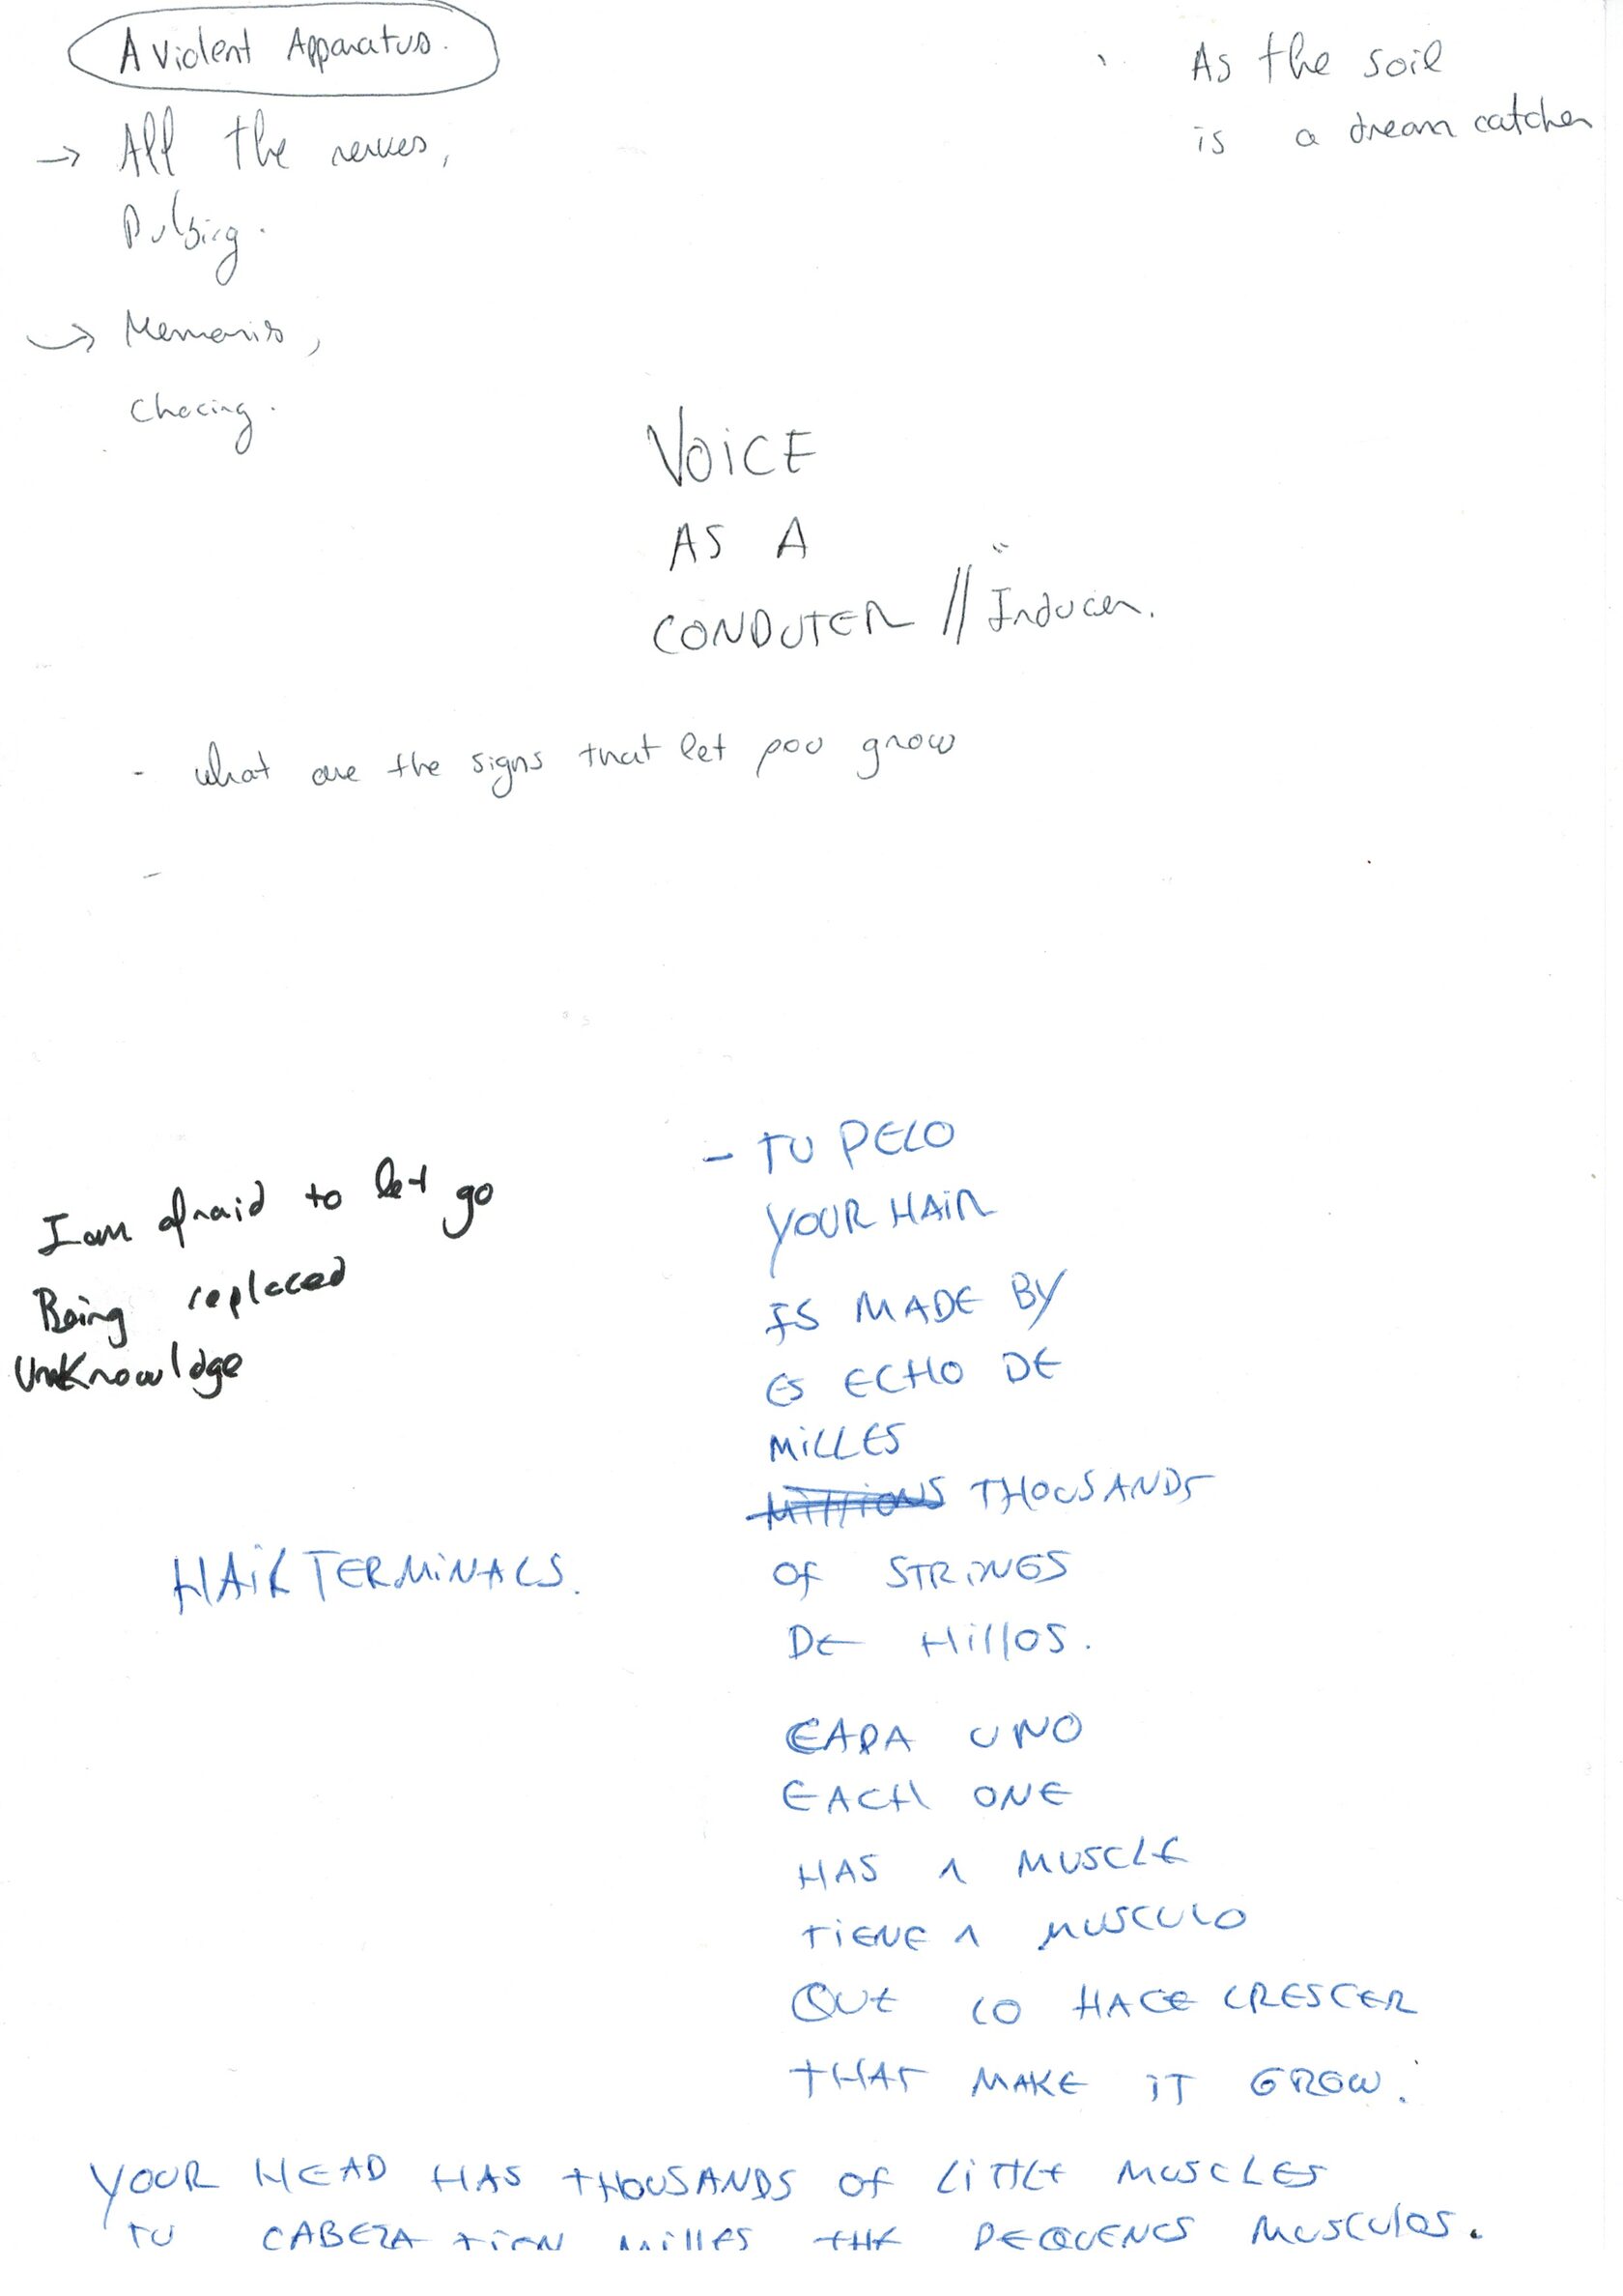 A Violent Apparatus.
As the soil
is a dream catcher
→ All the nerves,
Pulsing.
→ Memories,
Chasing.
VOICE
AS A
CONDUTER // Inducer.
- what are the signs that let you grow
-
I am afraid to let go
Being replaced
UnKnowldge
- TU PELO
YOUR HAIR
IS MADE BY
ES ECHO DE
MILLES
MILLIONS THOUSANDS
OF STRINGS
DE HILLOS.
HAIR TERMINALS.
CADA UNO
EACH ONE
HAS A MUSCLE
TIENE A MUSCULO
QUE LO HACE CRESCER
THAT MAKE IT GROW.
YOUR HEAD HAS THOUSANDS OF LITTLE MUSCLES
TU CABEZA TIEN MILLES THE PEQUENOS MUSCULOS.